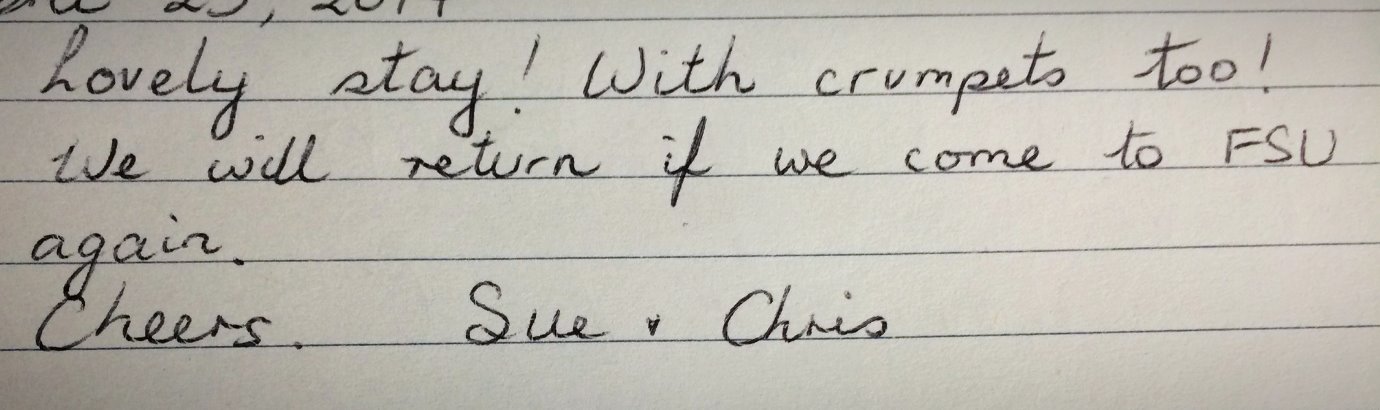 Lovely stay! With crumpets too!
We will return if we come to FSU
again.
Cheers. Sue & Chris